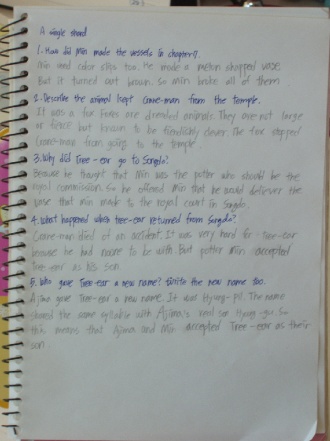 A single shard
1. How did Min made the vessels in chapter 7.
Min used color slips too. He made a melon shopped vase
But it turned out brown. So min broke all of them
2. Describe the animal kept crane-man from the temple.
It was a fox. Foxes are dreaded animals. They are not large
or fierce but known to be fiendishly clever. The fox stopped
Crane-man from going to the temple.
3. Why did Tree-ear go to Songdo?
Because he thought that Min was the potter who should be the
royal commission. So he offered Min that he would deliever the
vase that min made to the royal court in Songdo.
4. What happened when tree-ear returned from Songdo?
Crane-man died of an accident. It was very hard for tree-ear
because he had noone to be with. But potter Min accepted
Tree-ear as his son
5. Who gave Tree-ear a new name? Write the new name too.
Ajima gave Tree-ear a new name. It was Hyung-pil. The name
shared the same syllable with Ajima's real son Hyung-gu. So
this means that Ajima and Min accepted Tree-ear as their
son